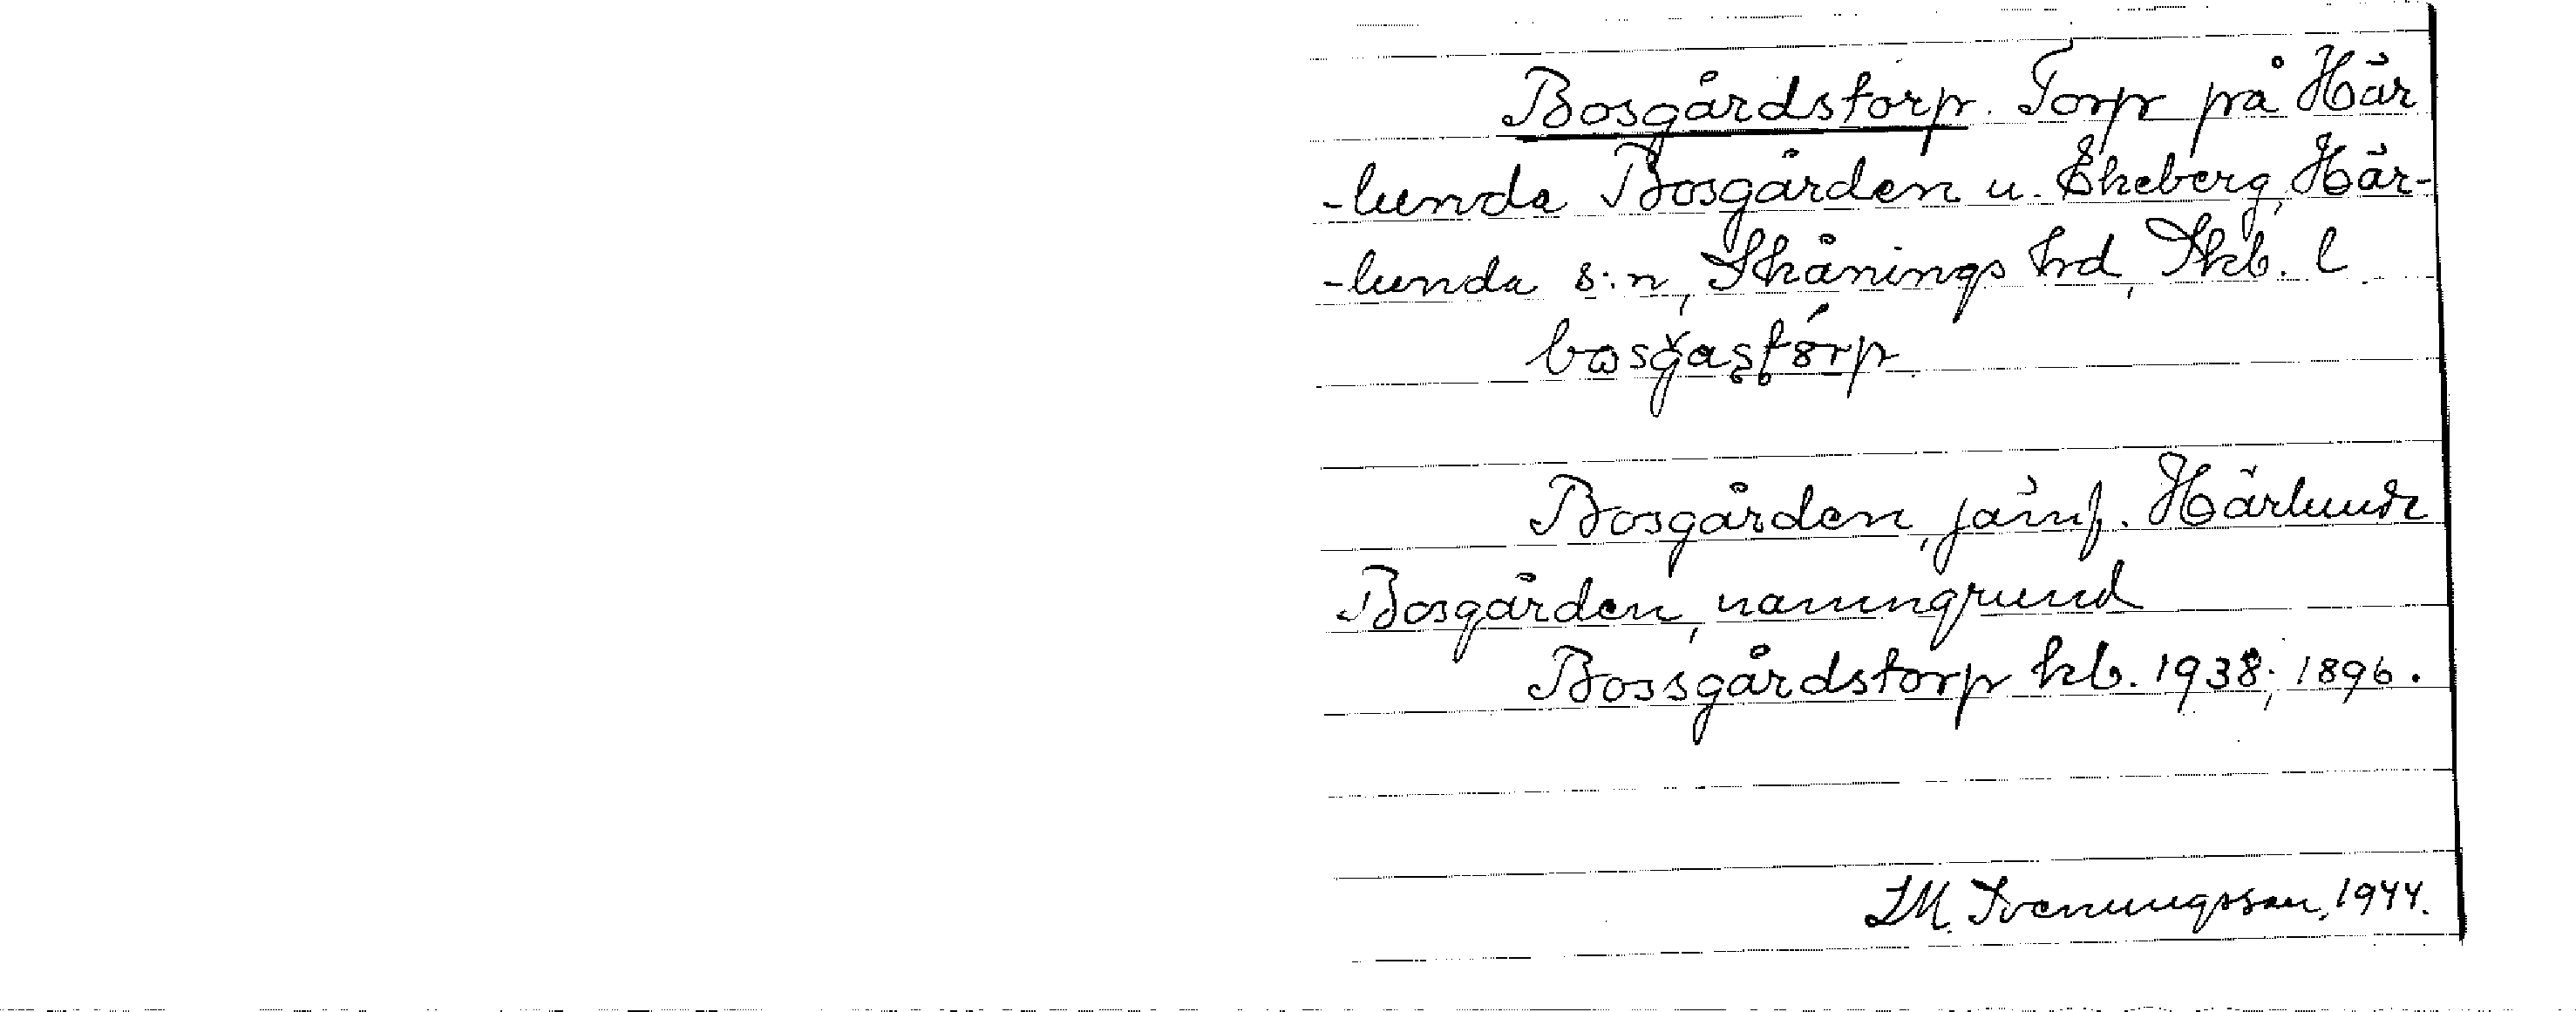 Bosgårdstorp. Torp på Här
-lunda Bosgården u. Ekeberg, Här-
-lunda s:n, Skånings hd, Skb. l
Bosgården, jämf. Härlunda
Bosgården, namngrund
Bossgårdstorp kb. 1938; 1896.
Svenungsson, 1944.